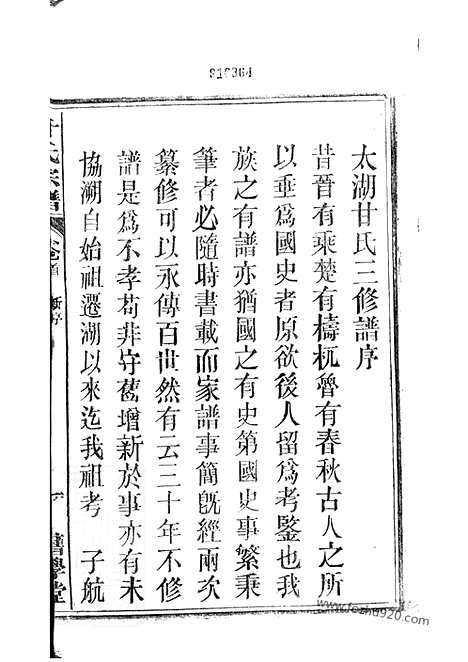 816364
太湖甘氏三修譜序
昔晉有乘楚有檮杌魯有春秋古人之所
以垂爲國史者原欲後人留爲考鑒也我
族之有譜亦猶國之有史第國史事繁秉
筆者必隨時書載而家譜事簡旣經兩次
纂修可以永傳百世然有云三十年不修
譜是爲不孝苟非守舊增新於事亦有未
協溯自始祖遷湖以來迄我祖考 子航
甘氏宗譜 卷首 新序 一
www.fozhu920.com